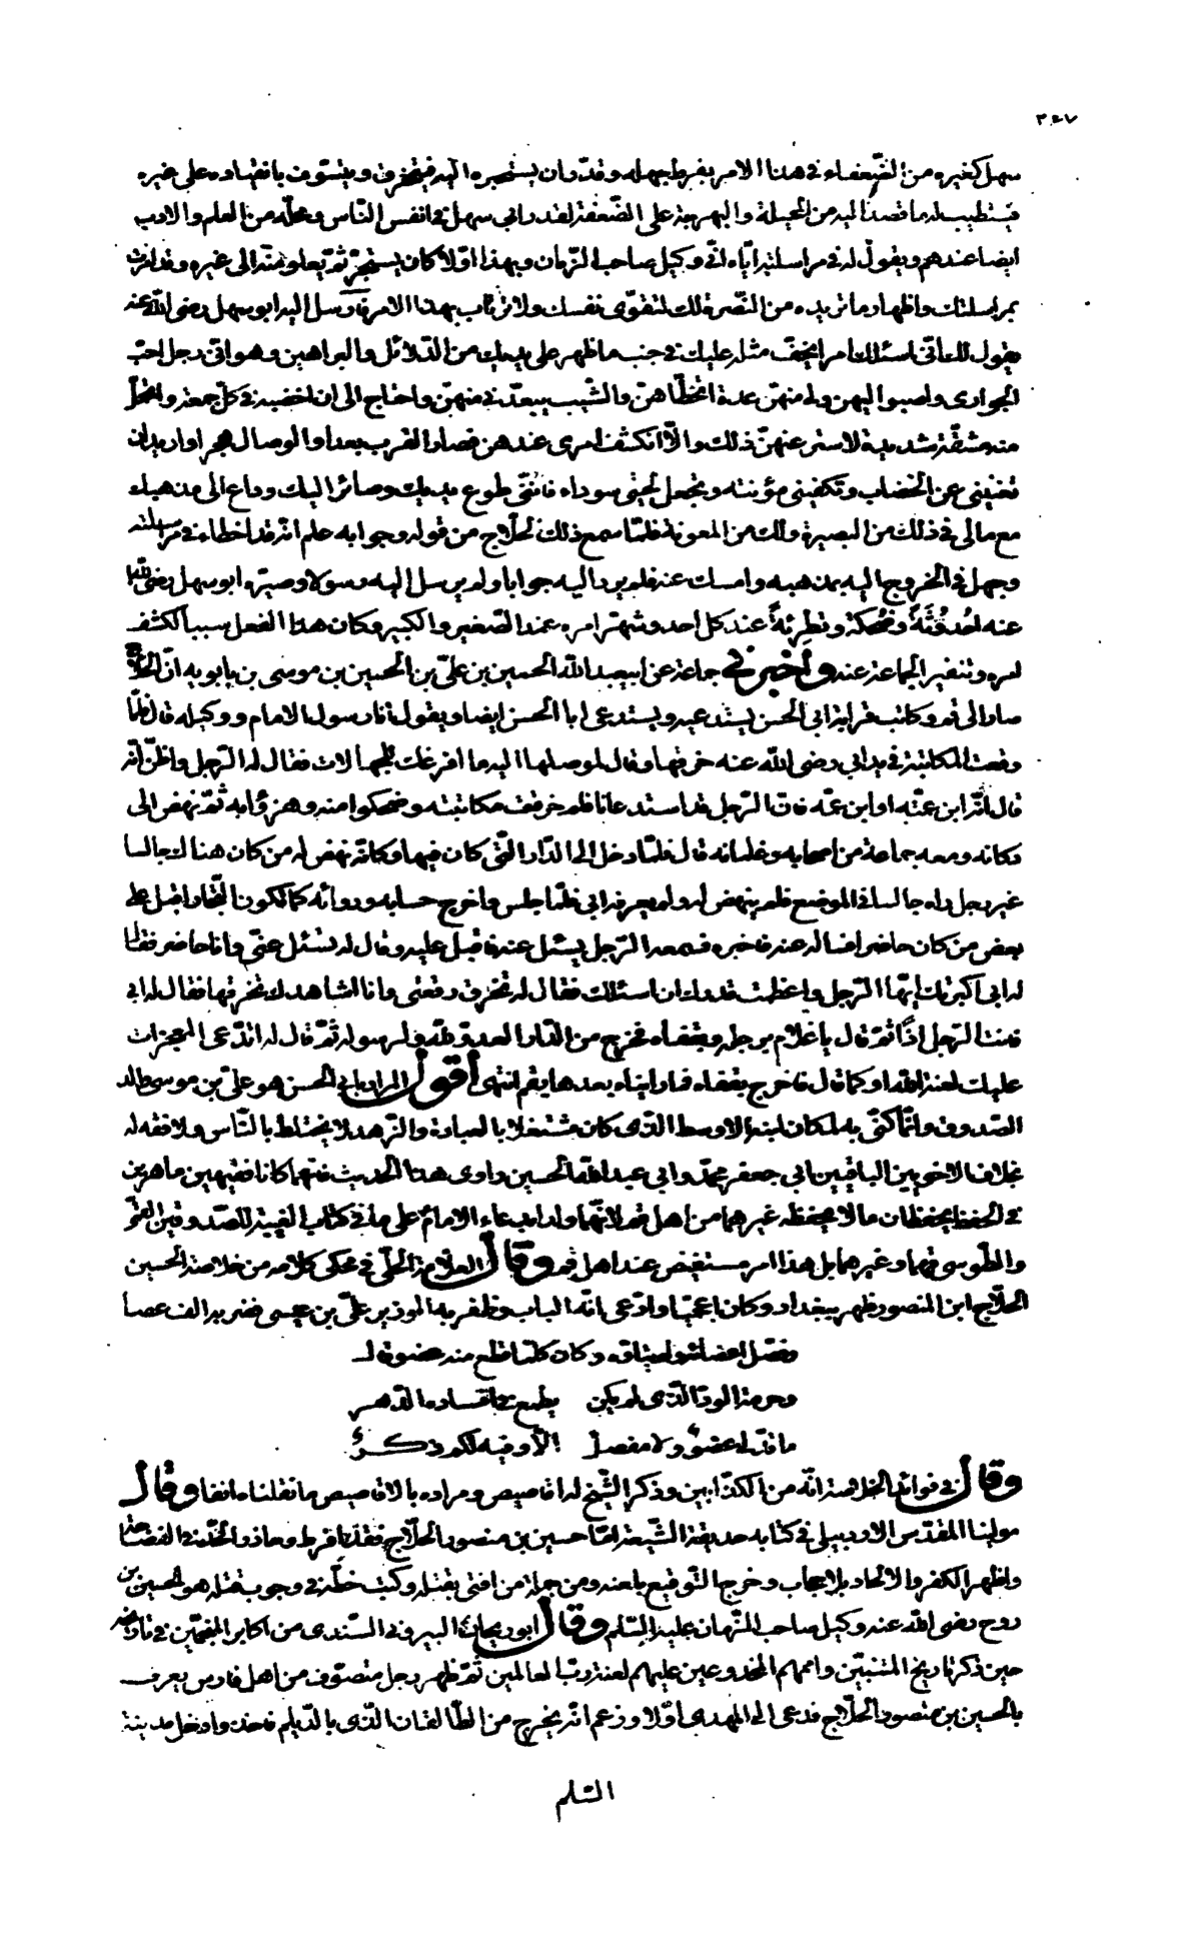 ٢٤٧
سهل كغيره من الضّعفاء في هذا الامر بفرط جهله وقدّر ان يستجره اليه فيتمخرق ويتسوف بانقياده على غيره
فيستتب له ما قصد اليه من الحيلة والبهرجة على الضّعفة لقدر ابي سهل في انفس النّاس ومحلّه من العلم والادب
ايضا عندهم ويقول له في مراسلته ايّاه انّي وكيل صاحب الزّمان وبهذا اوّلا كان يستجرّ ثمّ يعلو منه الى غيره وقد امرت
بمراسلتك واظهار ما تريده من النّصرة لك لتقوّى نفسك ولا ترتاب بهذا الامر فارسل اليه ابو سهل رضى اللّه عنه
يقول لك انّي اسئلك امرا يخفّ مثله عليك في جنب ما ظهر على يديك من الدّلائل والبراهين وهو انّي رجل احبّ
الجوارى واصبوا اليهن ولى منهنّ عدة اتخطّاهنّ والشّيب يبعدّني منهنّ واحتاج الى ان اخضبه في كلّ جمعة واتحمّل
منه مشقّة شديدة لاستر عنهنّ ذلك والّا انكشف امرى عندهن فصار القرب بعدا والوصال هجرا واريد ان
تغنينى عن الخضاب وتكفينى مؤنته وتجعل لحيتى سوداء فانّنى طوع يديك وصائر اليك وداع الى مذهبك
مع مالى في ذلك من البصيرة ولك من المعونة فلمّا سمع ذلك الحلّاج من قوله وجوابه علم انّه قد اخطاء في مراسلته
وجهل في الخروج اليه بمذهبه وامسك عنه فلم يرد اليه جوابا ولم يرسل اليه رسولا وصيّره ابو سهل رضى اللّه
عنه احُدوُثَةً وضُحكة ونطرئةً عند كل احد وشهّر امره عند الصّغير والكبير وكان هذا الفعل سببا لكشف
امره وتنفير الجماعة عنه واخبرني جماعة عن ابيعبد اللّه الحسين بن علىّ بن الحسين بن موسى بن بابويه انّ الحلّاج
صار الى قم وكاتب قرابة ابي الحسن يستدعيه ويستدعى ابا الحسن ايضا ويقول انا رسول الامام ووكيله قال فلمّا
وقعت المكاتبة في يد ابي رضى اللّه عنه خرقها وقال لموصلها اليه ما افرغك للجهالات فقال له الرّجل واظنّ انّه
قال انّه ابن عمّته او ابن عمّه فانّ الرّجل قد استدعانا فلم خرقت مكاتبته وضحكوا منه وهزؤا به ثمّ نهض الى
دكانه ومعه جماعة من اصحابه وغلمانه قال فلمّا دخل الى الدّار الّتى كان فيها دكانه نهض له من كان هناك جالسا
غير رجل راه جالسا في الموضع فلم ينهض له ولم يعرفه ابي فلمّا جلس واخرج حسابه ودواته كما يكون التّجّار اقبل على
بعض من كان حاضرا فساله عنه فاخبره فسمعه الرّجل يسئل عنه فاقبل عليه وقال له تسئل عنّى وانا حاضر فقال
له ابي اكبرتك ايّها الرّجل واعظمت قدرك ان اسئلك فقال له تخرق رقعتى وانا اشاهدك تخرقها فقال له ابي
فانت الرّجل اذًا ثمّ قال يا غلام برجله وبقفاه فخرج من الدّار العدوّ للّه ولرسوله ثمّ قال له اتدّعى المعجزات
عليك لعنة اللّه او كما قال فاخرج بقفاه فما رايناه بعدها بقم انتهى اقول المراد بابي الحسن هو علىّ بن موسى والد
الصّدوق وانّما كنّى به لمكان ابنه الاوسط الّذى كان مشتغلا بالعبادة والزّهد لا يختلط بالنّاس ولا فقه له
بخلاف الاخوين الباقيين ابي جعفر محمّد وابي عبد اللّه الحسين راوى هذا الحديث فانّهما كانا فقيهين ماهرين
في الحفظ يحفظان ما لا يحفظه غيرهما من اهل قم لانّهما ولدا بدعاء الامام على ما في كتاب الغيبة للصّدوق
والطّوسى فيها وغيرهما بل هذا امر مستفيض عند اهل قم وقال العلامة الحلّى في محكى كلامه من خلاصته الحسين
الحلّاج ابن المنصور ظهر ببغداد وكان اعجميّا وادّعى انّه الباب وظفر به الوزير علىّ بن عيسى فضربه الف عصا
وفصّل اعضائه ولم يتاوّه وكان كلّما قطع منه عضو قال
وحرمة الودّ الّذى لم يكن يطمع في افساده الدّهر
ما قدّ لى عضو ولا مفصل الّا وفيه لكم ذكرُ
وقال في فوائد الخلاصة انّه من الكذّابين وذكر الشّيخ له اقاصيص ومراده بالاقاصيص ما نقلناه انفا وقال
مولينا المقدّس الاردبيلى في كتابه حديقة الشّيعة امّا حسين بن منصور الحلّاج فقد افرط وجاوز الحدّ في
واظهر الكفر والالحاد بلا حجاب وخرج التّوقيع بلعنه ومن جملة من افتى بقتله وكتب خطّه في وجوب قتله هو الحسين بن
روح رضى اللّه عنه وكيل صاحب الزّمان عليه السّلم وقال ابو ريحان البيرونى السّندى من اكابر المنجّمين في
حين ذكر تاريخ المتنبّين واممهم المخدوعين عليهم لعنة ربّ العالمين ثمّ ظهر رجل متصوّف من اهل فارس يعرف
بالحسين بن منصور الحلّاج فدعى الى المهدى اوّلا وزعم انّه يخرج من الطّالقان الّذى بالدّيلم فاخذ وادخل مدينة
السّلم